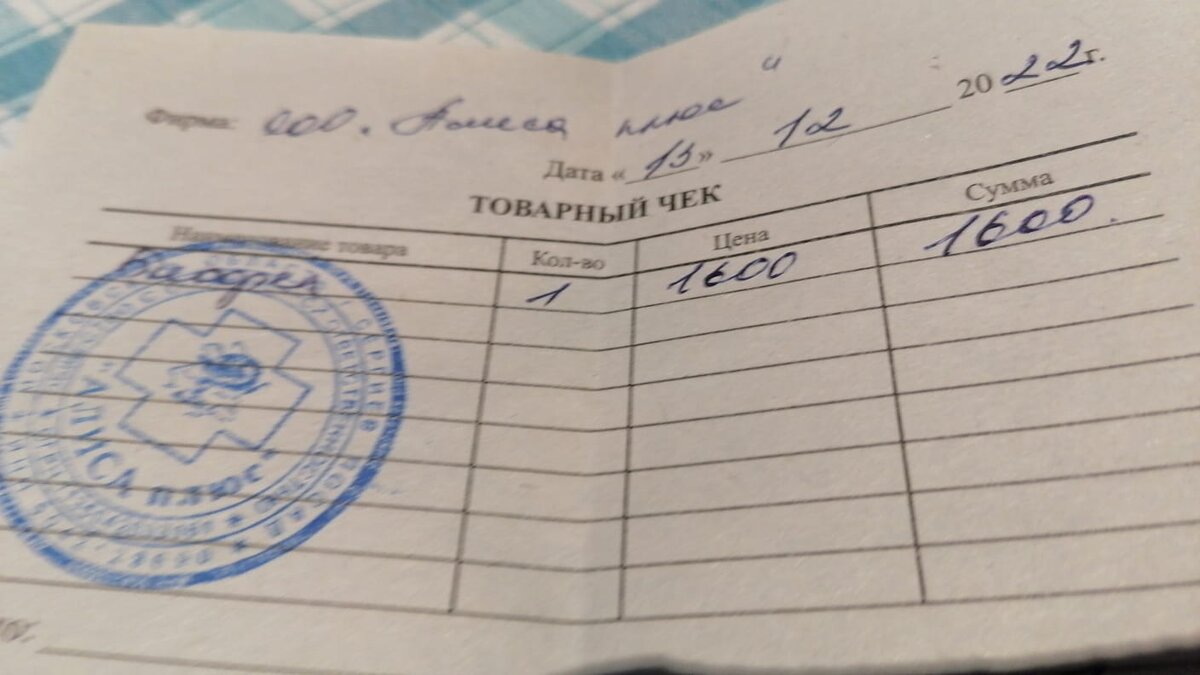 Фирма: ООО. Алиса плюс"
Дата «13» 12 2022г.
ТОВАРНЫЙ ЧЕК
Наименование товара Кол-во Цена Сумма
1 1600 1600.
"АЛИСА плюс"
СЕРГИЕВ ПОСАД